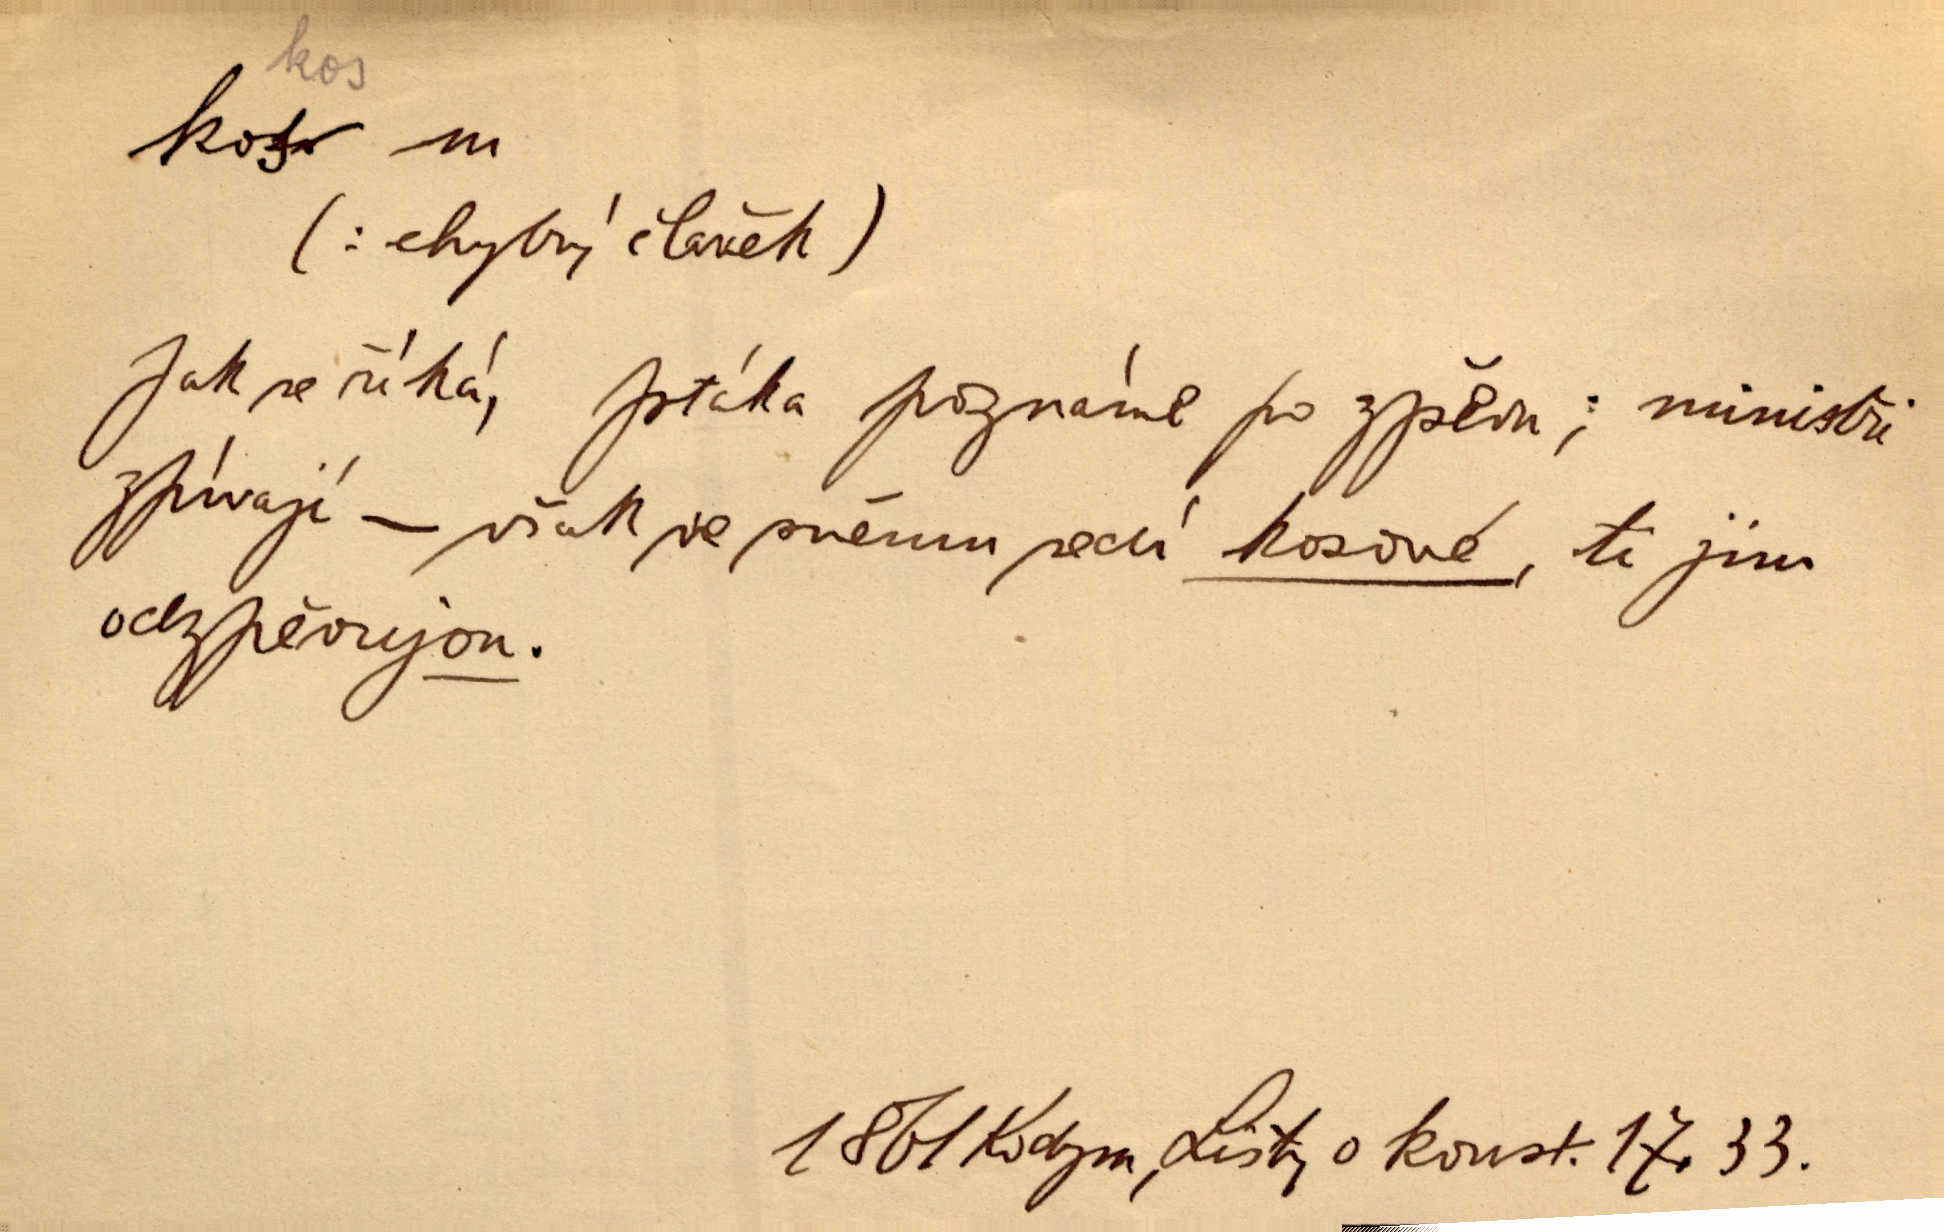 kos
kos m
(: chytrý člověk)
Jak se říká, ptáka poznáme po zpěvu; ministři
zpívají — však ve sněmu sedí kosové, ti jim
odzpěvujou.
1861 Kodym, Listy o konst. 17. 33.